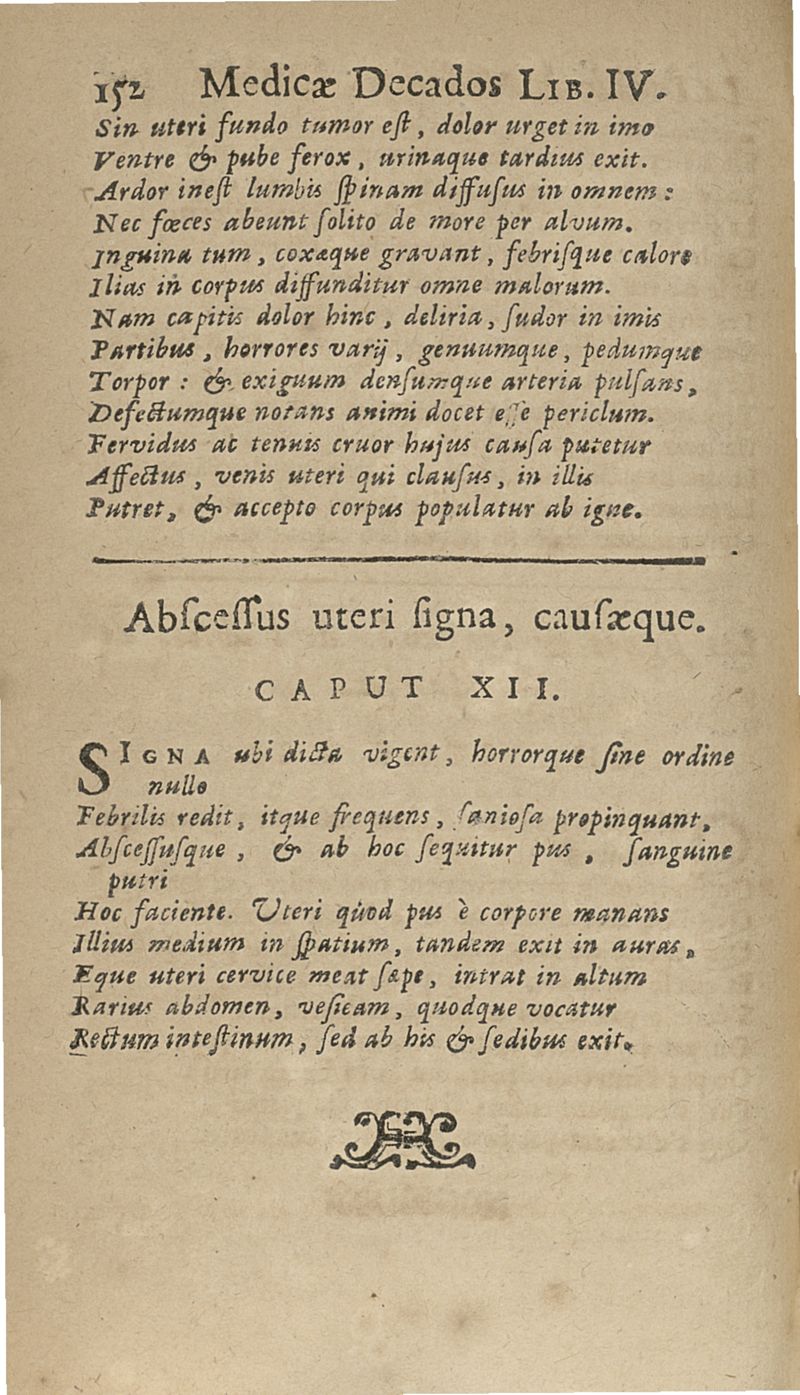 152 Medicæ Decados LIB. IV.
Sin uteri fundo tumor eſt, dolor urget in imo
Ventre & pube ferox, urinaque tardius exit.
Ardor ineſt lumbis ſpinam diffuſus in omnem:
Nec fœces abeunt ſolito de more per alvum.
Inguina tum, coxæque gravant, febriſque calore
Ilias in corpus diffunditur omne malorum.
Nam capitis dolor hinc, deliria, ſudor in imis
Partibus, horrores varij, genuumque, pedumque
Torpor: & exiguum denſumque arteria pulſans,
Defectumque notans animi docet eſſe periclum.
Fervidus ac tenuis cruor hujus cauſa putetur
Affectus, venis uteri qui clauſus, in illis
Putret, & accepto corpus populatur ab igne.
Abſceſſus uteri ſigna, cauſæque.
CAPUT XII.
SIGNA ubi dicta vigent, horrorque ſine ordine
nullo
Febrilis redit, itque frequens, ſanioſa propinquant,
Abſceſſuſque, & ab hoc ſequitur pus, ſanguine
putri
Hoc faciente. Uteri quòd pus è corpore manans
Illius medium in ſpatium, tandem exit in auras,
Eque uteri cervice meat ſæpe, intrat in altum
Rarius abdomen, veſicam, quodque vocatur
Rectum inteſtinum, ſed ab his & ſedibus exit.